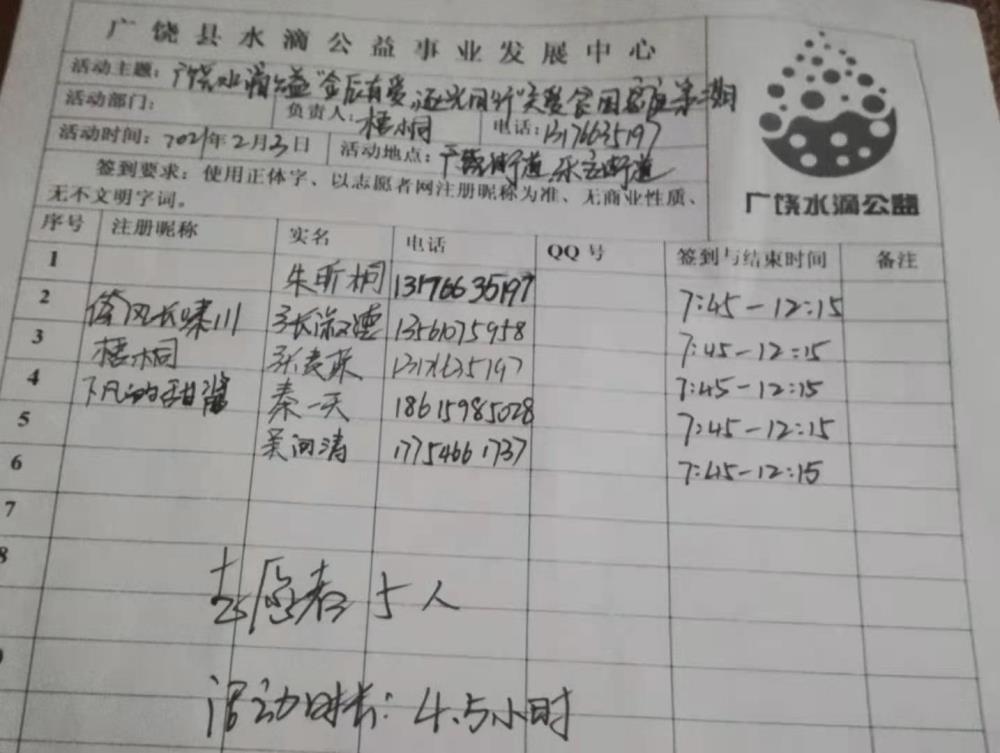 广饶县水滴公益事业发展中心
活动主题：广饶水滴公益"金辰有爱,逐光同行"关爱食困家庭第期
活动部门： 负责人：梧桐 电话：13176635197
活动时间：2021年2月3日 活动地点：广饶街道 乐安街道
签到要求：使用正体字、以志愿者网注册昵称为准、无商业性质、
无不文明字词。
广饶水滴公益
序号 注册昵称 实名 电话 QQ号 签到与结束时间 备注
1 朱昕桐 13176635197 7:45-12:15
2 倚风长啸川 张淑 13561075958 7:45-12:15
3 梧桐 张 13176635197 7:45-12:15
4 下凡的甜酱 秦一天 18615985028 7:45-12:15
5 吴润清 17754661737 7:45-12:15
6
7
8
志愿者5人
活动时长：4.5小时